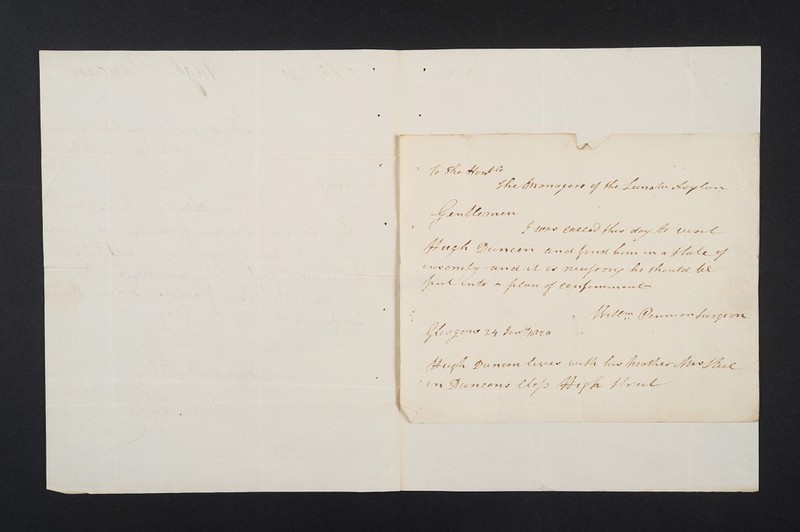 To the Honble
The Managers of the Lunatic Asylum
Gentlemen
I was called this day to visit
Hugh Duncan and find him in a state of
insanity and it is nessesary he should be
put into a place of confinement
Willm Penman Surgeon
Glasgow 24 Jany 1820
Hugh Duncan lives with his Mother Mrs
in Duncans Closs High Street